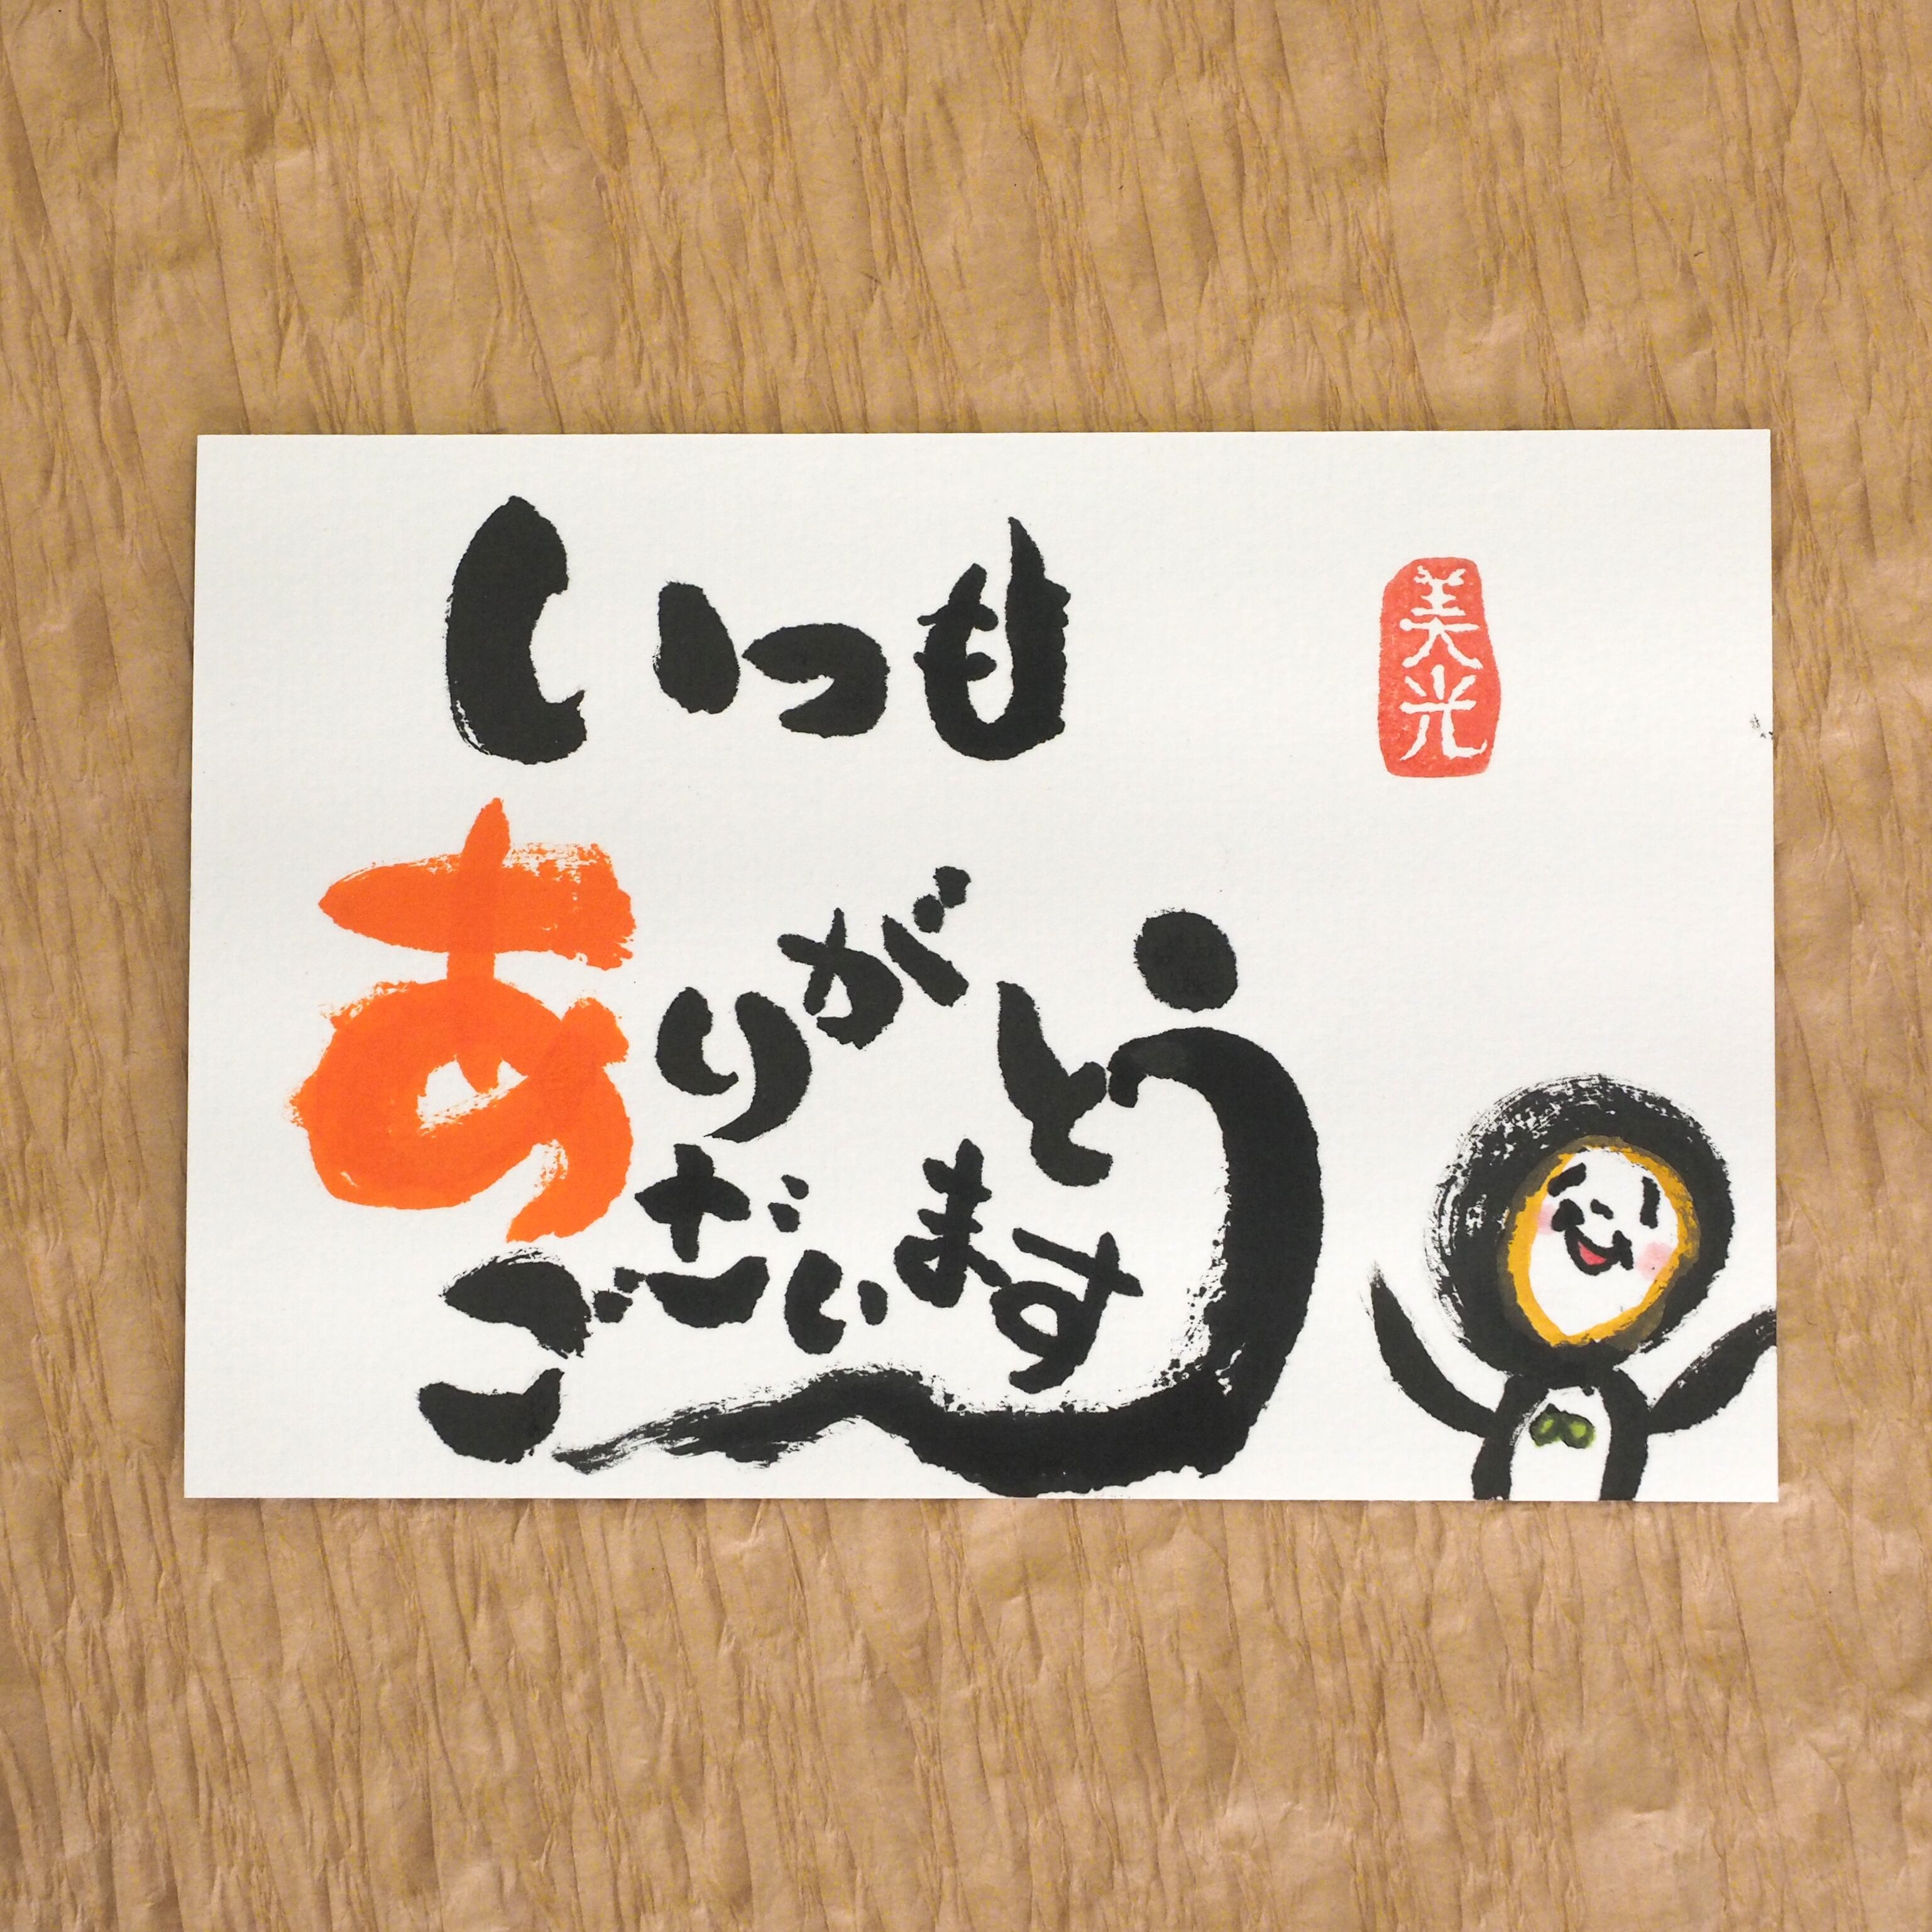 いつも
ありがとう
ございます
美光